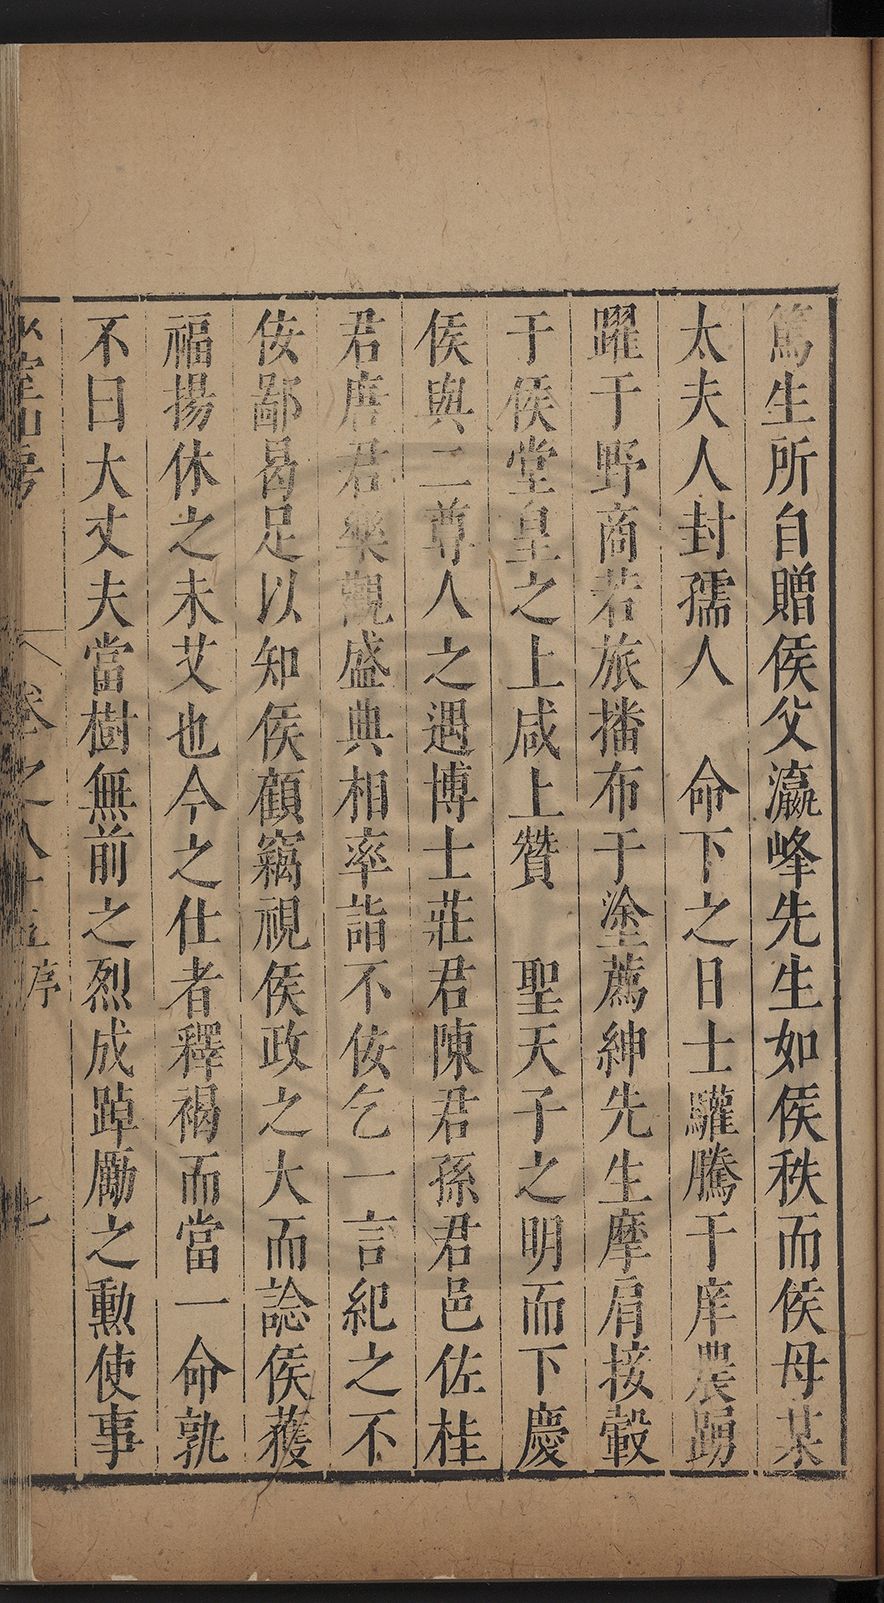 篤生所自贈侯父瀛峰先生如侯秩而侯母某
太夫人封孺人　命下之日士驩騰于庠農踴
躍于野商若旅播布于塗薦紳先生摩肩接轂
于侯堂皇之上咸上贊　聖天子之明而下慶
侯與二尊人之遇博士莊君陳君孫君邑佐桂
君唐君樂觀盛典相率詣不佞乞一言紀之不
佞鄙曷足以知侯顧竊視侯政之大而諗侯蒦
福揚休之未艾也今之仕者釋褐而當一命孰
不曰大丈夫當樹無前之烈成踔厲之勳使事
山房　卷之八十五序　七